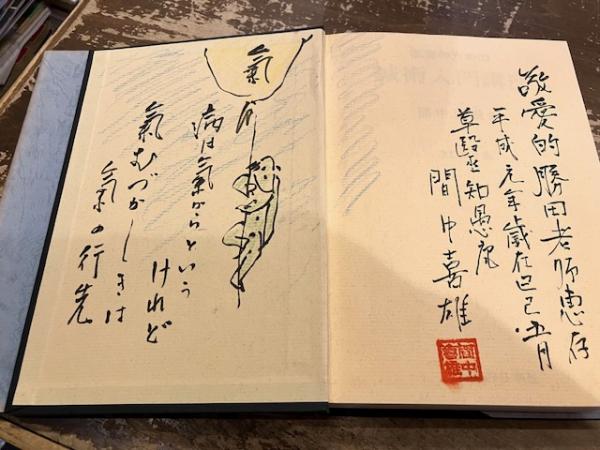 敬愛的勝田老师惠存
平成元年歳在己巳.五月
知愚庵
間中喜雄
間中喜雄
氣
病は氣からという
けれど
氣むづかしきは
氣の行先